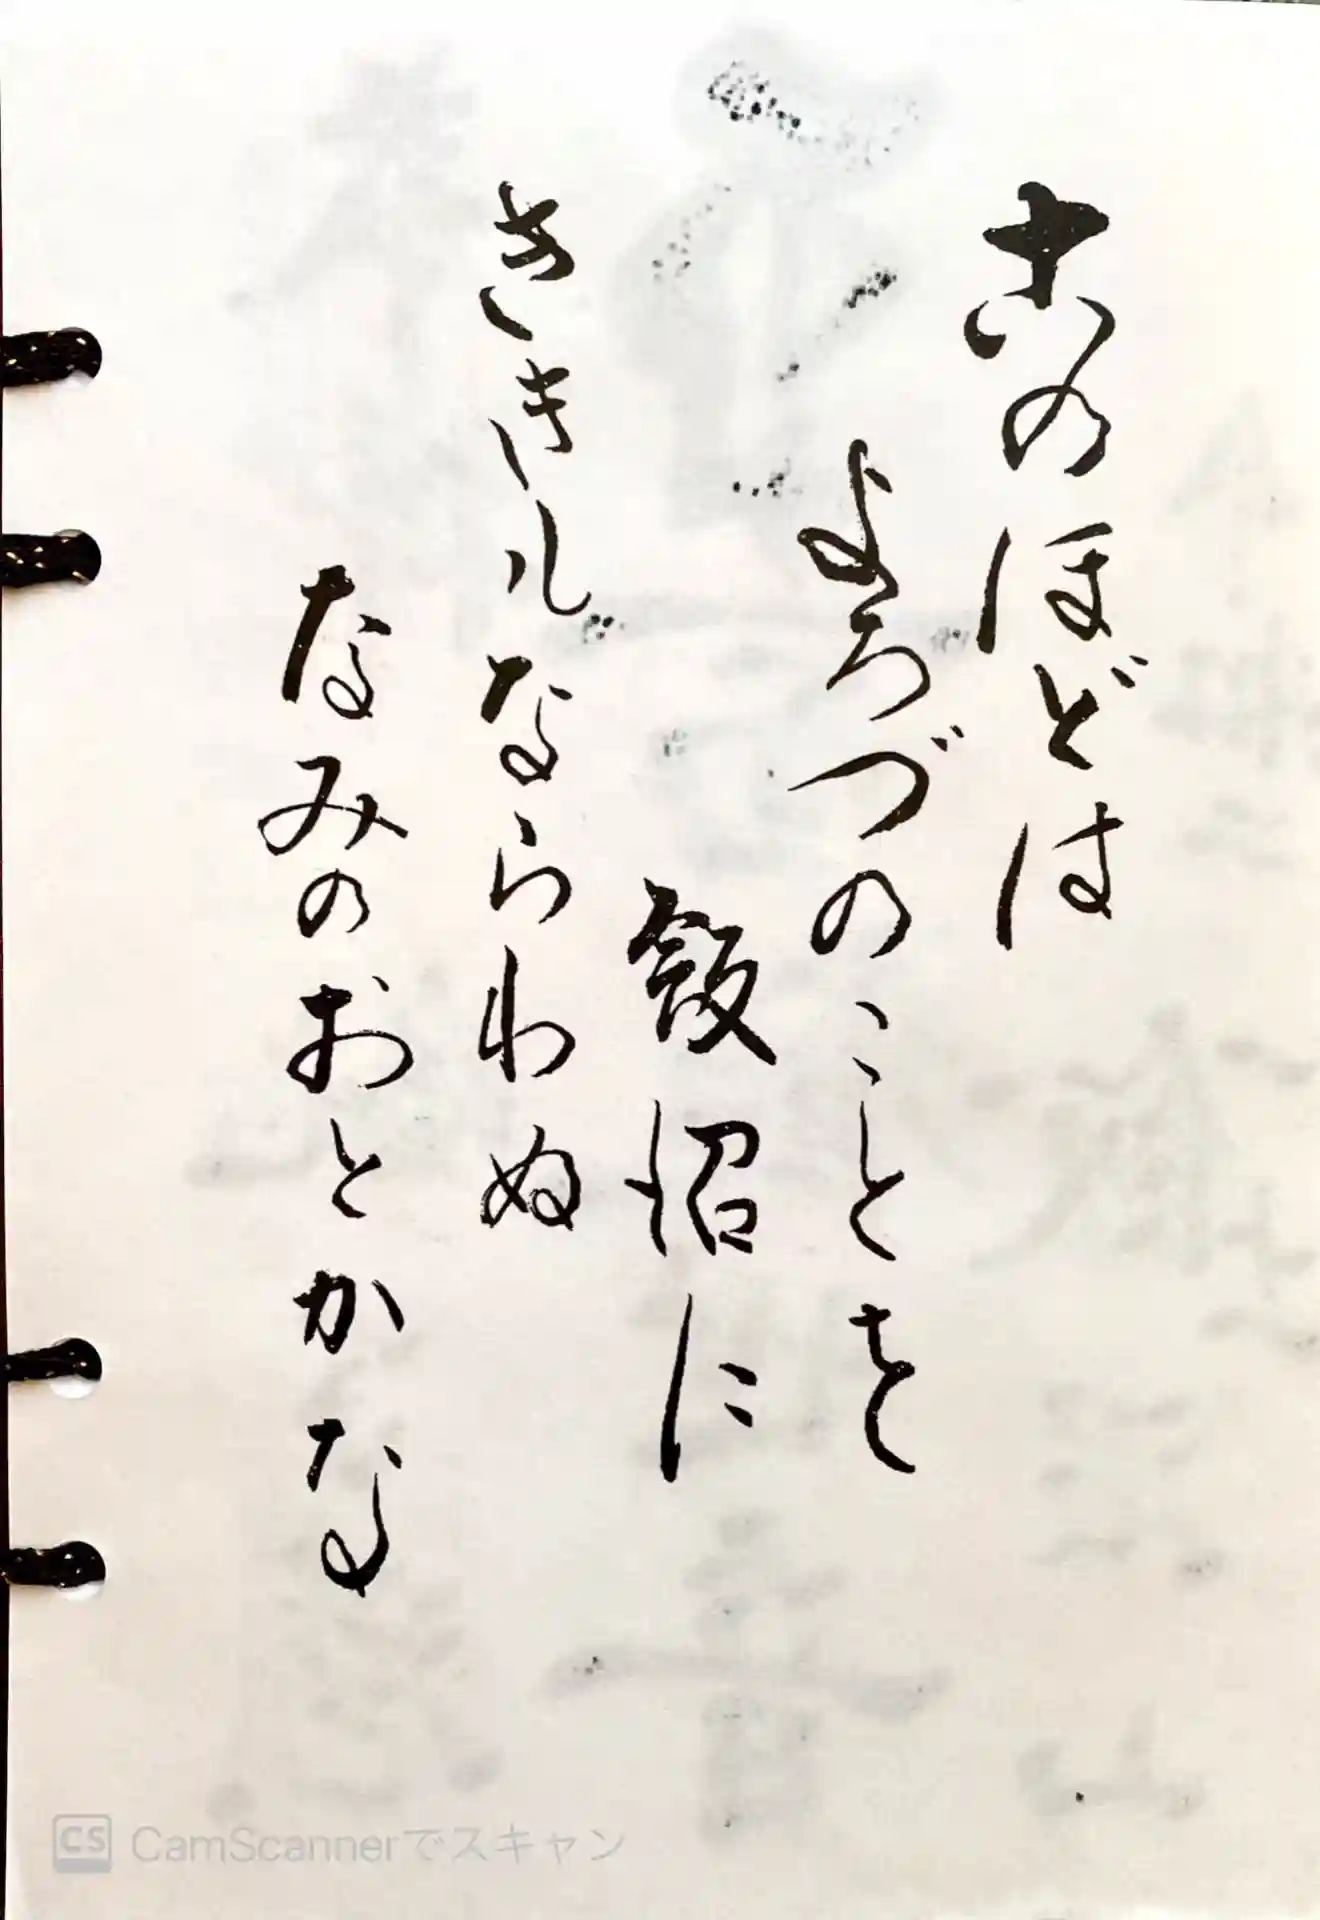 このほどは
よろづのことを
飯沼に
ききルならわぬ
なみのおとかな
CS CamScannerでスキャン